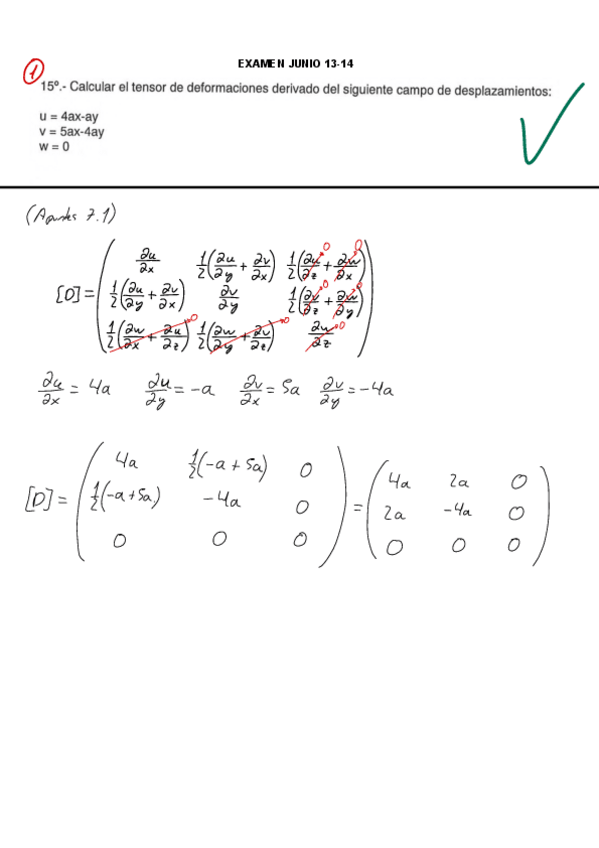 EXAMEN JUNIO 13-14
1
15º.- Calcular el tensor de deformaciones derivado del siguiente campo de desplazamientos:
u = 4ax-ay
v = 5ax-4ay
w = 0
(Apuntes 7.1)
[D] = ( ∂u/∂x 1/2(∂u/∂y + ∂v/∂x) 1/2(∂u/∂z + ∂w/∂x) 0 0
1/2(∂u/∂y + ∂v/∂x) ∂v/∂y 1/2(∂v/∂z + ∂w/∂y) 0 0
1/2(∂w/∂x + ∂u/∂z) 0 1/2(∂w/∂y + ∂v/∂z) 0 ∂w/∂z 0 )
∂u/∂x = 4a ∂u/∂y = -a ∂v/∂x = 5a ∂v/∂y = -4a
[D] = ( 4a 1/2(-a + 5a) 0 ) = ( 4a 2a 0 )
1/2(-a + 5a) -4a 0 2a -4a 0
0 0 0 0 0 0